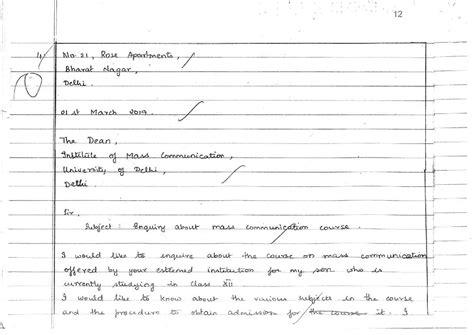 12
No 21, Rose Apartments,
Bharat Nagar,
Delhi.
01st March 2019.
The Dean,
Institute of Mass Communication,
University of Delhi,
Delhi.
Sir.
Subject : Enquiry about mass communication course.
I would like to enquire about the course on mass communication
offered by your esteemed institution for my son who is
currently studying in Class XII
I would like to know about the various subjects in the course
and the procedure to obtain admission for the course it. I